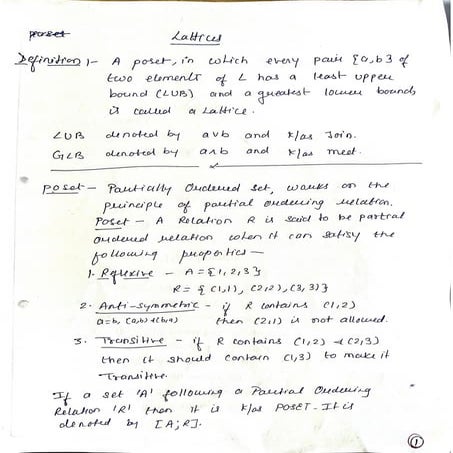 poset
Lattices
Definition :- A poset, in which every pair {a, b} of
two elements of L has a least upper
bound (LUB) and a greatest lower bounds
is called a Lattice.
LUB denoted by a∨b and k/as Join.
GLB denoted by a∧b and k/as meet.
Poset - Partially Ordered Set, works on the
principle of partial ordering relation.
Poset - A Relation R is said to be partial
ordered relation when it can satisfy the
following properties -
1. Reflexive - A = {1, 2, 3}
R = {(1,1), (2,2), (3,3)}
2. Anti-symmetric - if R contains (1,2)
a=b, (a,b) ≠ (b,a) then (2,1) is not allowed.
3. Transitive - if R contains (1,2) & (2,3)
then it should contain (1,3) to make it
Transitive.
If a set 'A' following a Partial Ordering
Relation 'R' then it is k/as POSET - It is
denoted by [A; R].
1